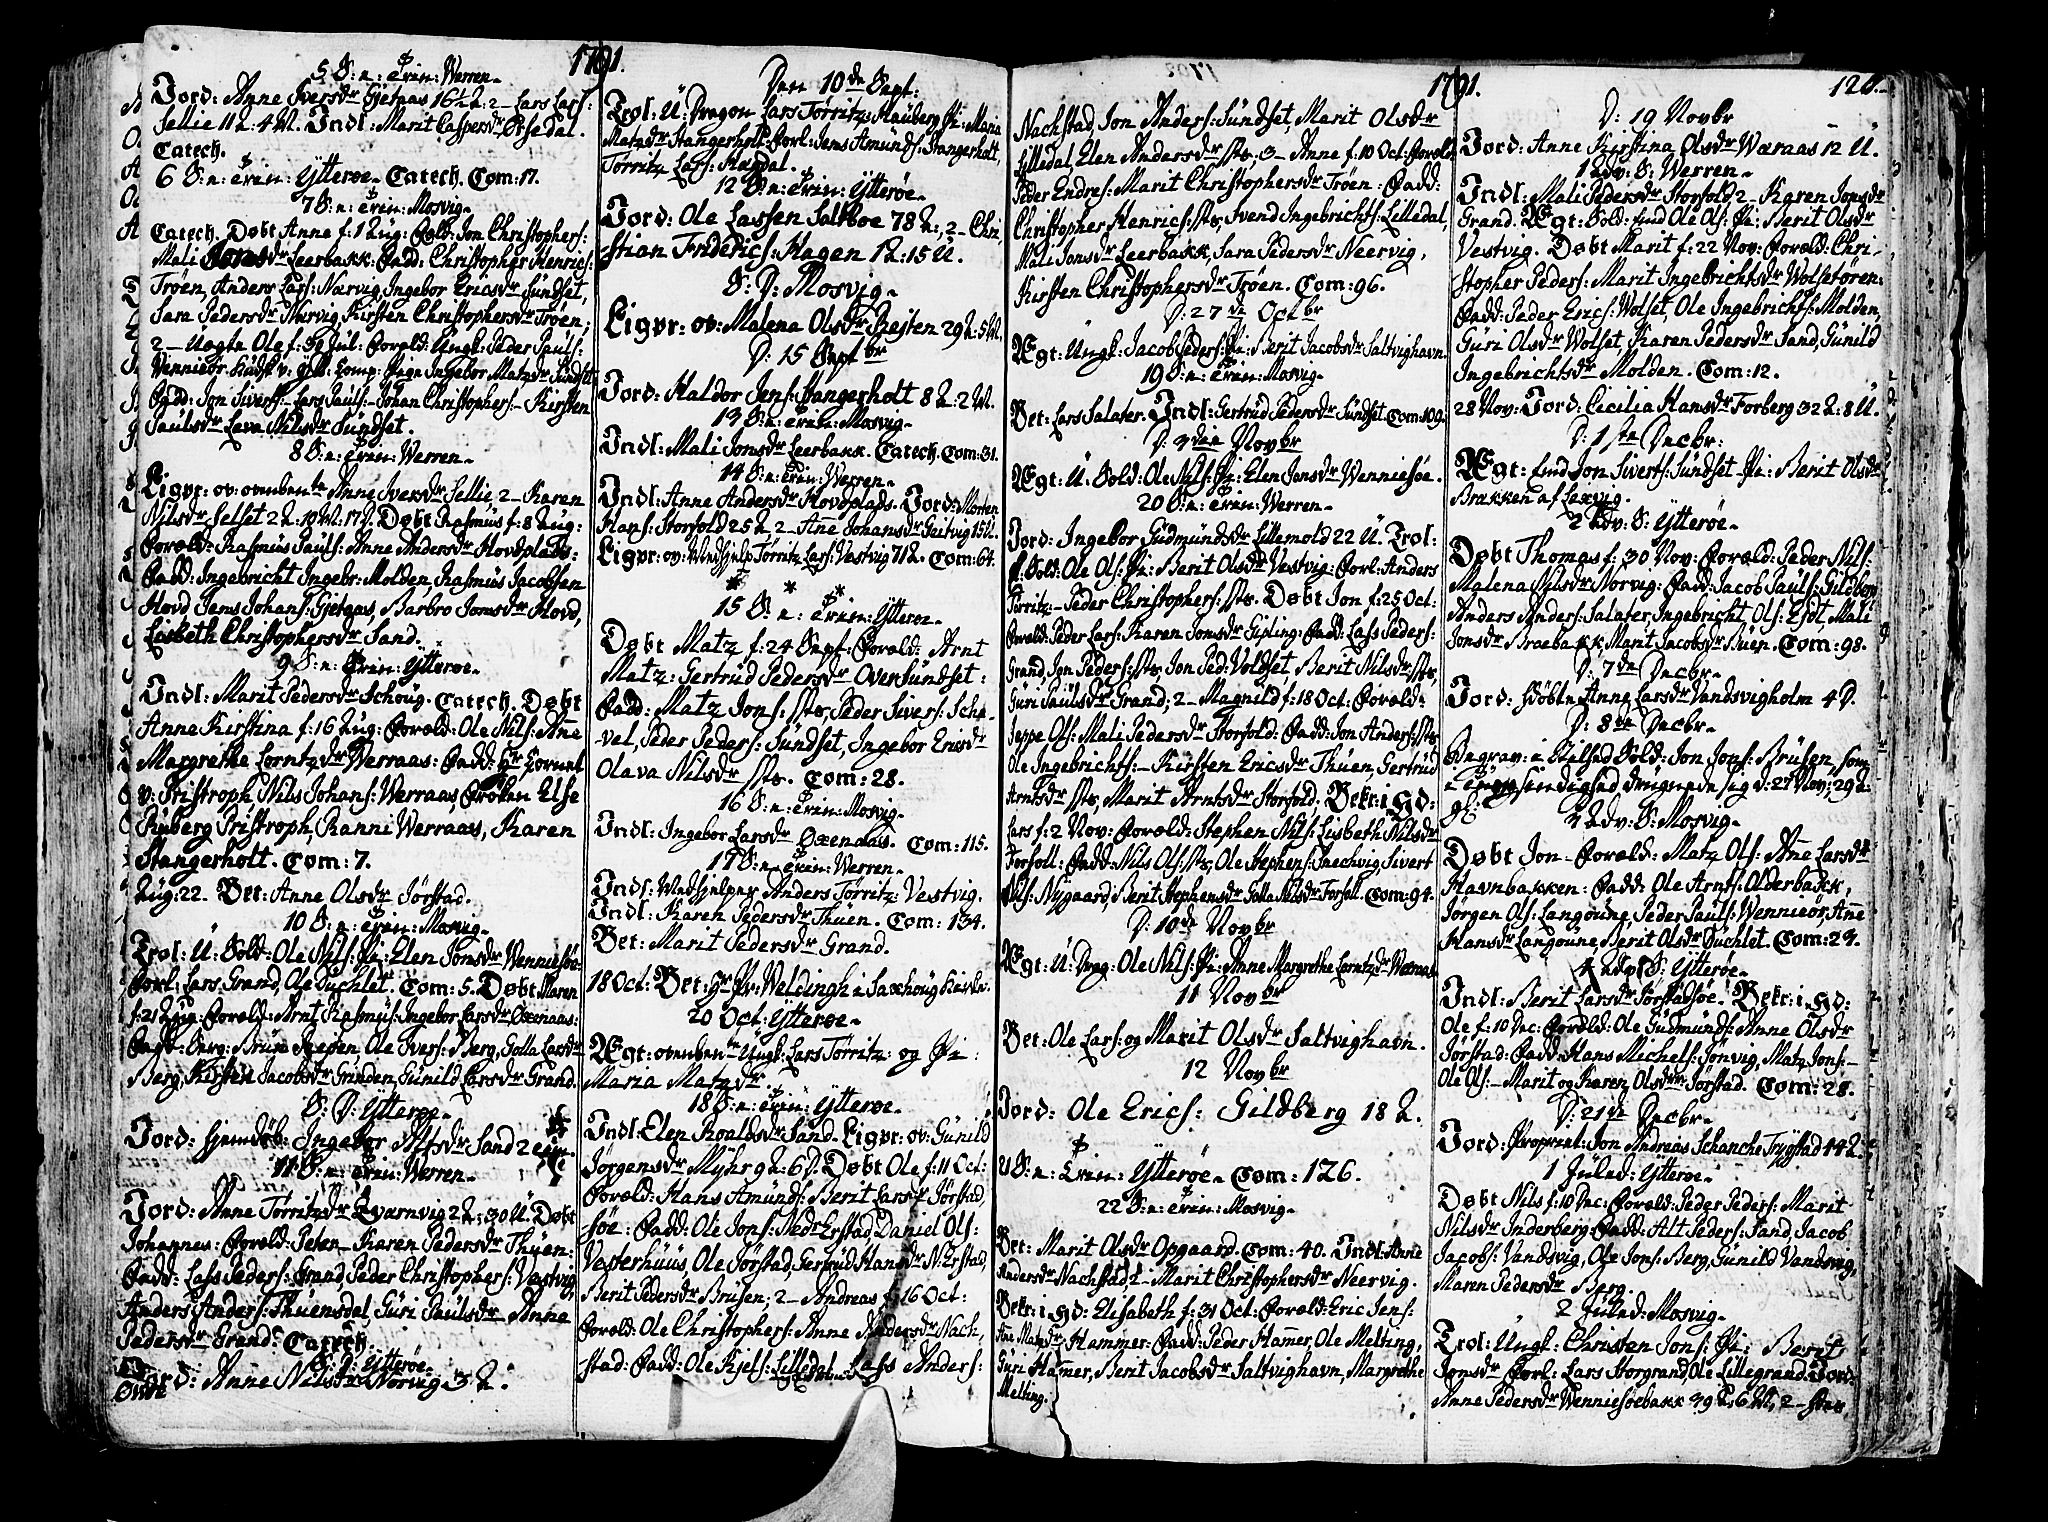 1791.
5 S: n: Trin: Werren.
Jord: Anne Iversdr Gjetaas 16½ A: 2 Lars Lars:
Sellie 11 A. 4 M. Indl: Marit Caspersdr
Catech.
6 S: n: Trin: Ytterøe. Catech. Com: 17.
7 S: n: Trin: Mosvig.
Catech. Døbt Anne f: 1 Aug: Foræld: Jon Christophers:
Mali Jonsdr Leerbakk: Fadd: Christopher Henrics:
Trøen, Anders Lars: Nærvig, Ingebor Ericsdr Sundset,
Sara Pedersdr Nærvig, Kirsten Christophersdr Trøen;
2 Uægte Ole f: Jul: Foræld: Ungk: Peder Pauls:
Wenniesør Pige Ingebor Matzdr Sundset
Fadd: Jon Sivers: Lars Pauls: Johan Christophers: Kirsten
Paulsdr Lava Nilsdr Sundset.
8 S: n: Trin: Werren.
Ligpr: ov: ovenben:te Anne Iversdr Sellie, 2 Karen
Nilsdr Selset 2 A. 10 M. 17 D. Døbt Rasmus f: 8 Aug:
Foræld: Rasmus Pauls: Anne Andersdr Hovdplads:
Fadd: Ingebricht Ingebr: Molden, Rasmus Jacobsen
Hovd, Jens Johans: Gjetaas, Barbro Jonsdr Hovd,
Lisbeth Christophersdr Sand.
9 S: n: Trin: Ytterøe.
Indl: Marit Pedersdr Schoug. Catech. Døbt
Anne Kirstina f: 16 Aug: Foræld: Ole Nils: Anne
Margrethe Lorntzdr Werraas: Fadd: Hr Cornet
v: Pristroph, Nils Johans: Werraas, Frøken Else
Ruberg Pristroph, Ranni Werraas, Karen
Stangerholt. Com: 7.
Aug: 22. Bet: Anne Olsdr Jørstad.
10 S: n: Trin: Mosvig.
Trol: U: Sold: Ole Nils: Pi: Elen Jonsdr Wenniesøe
Forl: Lars Grand, Ole Duchlet. Com: 5. Døbt Maren
f: 21 Aug: Foræld: Arnt Rasmus: Ingebor Larsdr Oxenaas:
Fadd: Serg: Brun Rejsen, Ole Ivers: Berg, Golla Larsdr
Berg, Kirsten Jacobsdr Grinden, Gunild Larsdr Grand.
S: D: Ytterøe.
Jord: hjemdøb: Ingebor Alfsdr Sand
11 S: n: Trin: Werren.
Jord: Anne Tørritzdr Qvarnvig 2 A: 30 U. Døbt
Johannes: Foræld: Peter Karen Pedersdr Thuen:
Fadd: Lass Peders: Grand, Peder Christophers: Vestvig
Anders Anders: Thuensdal, Guri Paulsdr Anne
Pedersdr Grand. Catech.
S: D: Ytterøe.
Jord: Anne Nilsdr Norvig 3 A.
Den 10de Sept:
Trol: U: Dragon Lars Tørritz: Hauberg Pi: Maria
Matzdr Stangerholt: Forl: Jens Amunds: Stangerholt,
Tørritz Lars: Hagdal.
12 S: n: Trin: Ytterøe.
Jord: Ole Lassen Saltboe 78 A:, 2 Chri,
stian Friderics: Hagen 1 A: 15 U.
S: D: Mosvig.
Ligpr: ov: Malena Olsdr Rejten 29 A: 5 M.
D: 15 Septbr
Jord: Haldor Jens: Stangerholt 8 A: 2 M.
13 S: n: Trin: Mosvig.
Indl: Mali Jonsdr Leerbakk. Catech. Com: 31.
14 S: n: Trin: Werren.
Indl: Anne Andersdr Hovdplads. Jord: Morten
Hans: Storfold 25 A 2 Anne Johansdr Gaitvig 15 U.
Ligpr: ov: Medhjelp: Tørritz Lars: Vestvig 71 A. Com: 64.
15 S: n: Trin: Ytterøe.
Døbt Matz f: 24 Sept: Foræld: Arnt
Matz: Gertrud Pedersdr OverSundset:
Fadd: Matz Jons: Sts, Peder Sivers: Scha,
vel, Peder Peders: Sundset, Ingebor Ericsdr
Olava Nilsdr Sts. Com: 28.
16 S: n: Trin: Mosvig.
Indl: Ingebor Larsdr Oxenaas. Com: 115.
17 S: n: Trin: Werren.
Indl: Medhjelper Anders Tørritz: Vestvig.
Indl: Karen Pedersdr Thuen. Com: 134.
Bet: Marit Pedersdr Grand.
18 Oct: Bet: Hr Pr: Weldingh i Saxhoug Kirke.
20 Oct: Ytterøe.
Ægt: ovenben:te Ungk: Lars Tørritz: og Pi:
Maria Matzdr.
18 S: n: Trin: Ytterøe.
Indl: Elen Roaldsdr Sand. Ligpr: ov: Gunild
Jørgensdr Myhr 9 A: 6 D. Døbt Ole f: 11 Oct:
Foræld: Hans Amunds: Berit Larsdr Jørstad,
søe: Fadd: Ole Jons: Nedr Erstad, Daniel Ols:
Vesterhuus, Ole Jørstad, Gertrud Hansdr N: Erstad,
Berit Pedersdr Brusen; 2 Andreas f: 16 Oct:
Foræld: Ole Christophers: Anne Andersdr Nach,
stad: Fadd: Ole Kjels: Lilledal, Lass Anders:
1791.
Nachstad, Jon Anders: Sundset, Marit Olsdr
Lilledal, Elen Andersdr Sts; 3 Anne f: 10 Oct: Foræld:
Peder Endres: Marit Christophersdr Trøen: Fadd:
Christopher Henrics: Sts, Svend Ingebrichts: Lilledal,
Mali Jonsdr Leerbakk, Sara Pedersdr Neervig,
Kirsten Christophersdr Trøen. Com: 96.
D: 27de Octbr
Ægt: Ungk: Jacob Peders: Pi: Berit Jacobsdr Saltvighavn.
19 S: n: Trin: Mosvig.
Bet: Lars Salater. Indl: Gertrud Pedersdr Sundset. Com: 109.
D: 3die Novbr
Ægt: U: Sold: Ole Nils: Pi: Elen Jonsdr Wenniesøe.
20 S: n: Trin: Werren.
Jord: Ingebor Gudmundsdr Lillemold 22 U. Trol:
Sold: Ole Ols: Pi: Berit Olsdr Vestvig: Forl: Anders
Tørritz: Peder Christophers: Sts. Døbt Jon f: 25 Oct:
Foræld: Peder Lars: Karen Jonsdr Gipling: Fadd: Lass Peders:
Grand, Jon Peders: Sts, Jon Ped: Voldset, Berit Nilsdr Sts,
Guri Paulsdr Grand; 2 Magnild f: 18 Oct: Foræld:
Jeppe Ols: Mali Pedersdr Storfold: Fadd: Jon Anders: Sts
Ole Ingebrichts: Kirsten Ericsdr Thuen, Gertrud
Arntsdr Sts, Marit Arntsdr Storfold. Bekr: i Hd:
Lars f: 2 Nov: Foræld: Stephen Nils: Lisbeth Nilsdr
Forfoll: Fadd: Nils Ols: Sts, Ole Stephens: Saechvig, Sivert
Nils: Nygaard, Berit Stephensdr Golla Nilsdr Forfoll. Com: 94.
D: 10de Novbr
Ægt: U: Drag: Ole Nils: Pi: Anne Margrethe Lorntzdr Wæraas.
11 Novbr
Bet: Ole Lars: og Marit Olsdr Saltvighavn.
12 Novbr
Jord: Ole Erics: Gildberg 18 A.
21 S: n: Trin: Ytterøe. Com: 126.
22 S: n: Trin: Mosvig.
Bet: Marit Olsdr Opgaard. Com: 40. Indl: Anne
Andersdr Nachstad, 2 Marit Christophersdr Neervig.
Bekr: i Hd: Elisabeth f: 31 Oct: Foræld: Eric Jens:
Ane Matzdr Hammer: Fadd: Peder Hamer, Ole Melting,
Guri Hamer, Berit Jacobsdr Saltvighavn, Margrethe
Melting.
126.
D: 19 Novbr
Jord: Anne Kirstina Olsdr Wæraas 12 U.
1 Adv: S: Werren.
Indl: Mali Pedersdr Storfold, 2 Karen Jonsdr
Grand. Ægt: Sold: Emd Ole Ols: Pi: Berit Olsdr
Vestvig. Døbt Marit f: 22 Nov: Foræld: Chri,
stopher Peders: Marit Ingebrichtsdr Wolsetøren:
Fadd: Peder Erics: Wolset, Ole Ingebrichts: Molden,
Guri Olsdr Wolset, Karen Pedersdr Sand, Gunild
Ingebrichtsdr Molden. Com: 12.
28 Nov: Jord: Cecilia Hansdr Forberg 32 A: 8 U.
D: 1ste Decbr:
Ægt: Emd Jon Siverts: Sundset Pi: Berit Olsdr
Brakken af Lexvig.
2 Adv: S: Ytterøe.
Døbt Thomas f: 30 Nov: Foræld: Peder Nils:
Malena Nilsdr Norvig: Fadd: Jacob Pauls: Gildberg
Anders Anders: Salater, Ingebricht Ols: Eydt, Mali
Jonsdr Braebakk, Marit Jacobsdr Buen. Com: 98.
D: 7de Decbr.
Jord: Anne Larsdr Vandsvigholm 4 D.
D: 8de Decbr.
Begrav: i Stilhed Sold: Jon Jons: Brusen, som
i sindighed drugnede sig D: 27 Nov; 29 A:
gl:
3 Adv: S: Mosvig.
Døbt Jon Foræld: Matz Ols: Anne Larsdr
Havnbakken: Fadd: Ole Arnts: Olderbakk,
Jørgen Ols: Langøune, Peder Pauls: Wenniesør, Ane
Hansdr Langøune, Berit Olsdr Duchlet. Com: 23.
4 Adv: S: Ytterøe.
Indl: Berit Larsdr Jørstadsøe. Bekr: i Hd:
Ole f: 10 Dec: Foræld: Ole Gudmunds: Anne Olsdr
Jørstad: Fadd: Hans Michels: Jønvig, Matz Jons:
Ole Ols: Marit og Karen Olsdr Jørstad. Com: 28.
D: 21de Decbr.
Jord: Proprietr: Jon Andreas Schanche Trygstad 44 A:
1 Juled: Ytterøe.
Døbt Nils f: 10 Dec: Foræld: Peder Peders: Marit
Nilsdr Inderberg: Fadd: Alt Peders: Sand, Jacob
Jacobs: Vandsvig, Ole Jons: Berg, Gunild Vandsvig,
Maren Pedersdr Berg.
2 Juled: Mosvig.
Trol: Ungk: Christen Jons: Pi: Berit
Jonsdr Forl: Lars Storgrand, Ole Lillegrand. Jord:
Anne Pedersdr Wenniesøebakk 39 A, 6 M, 2